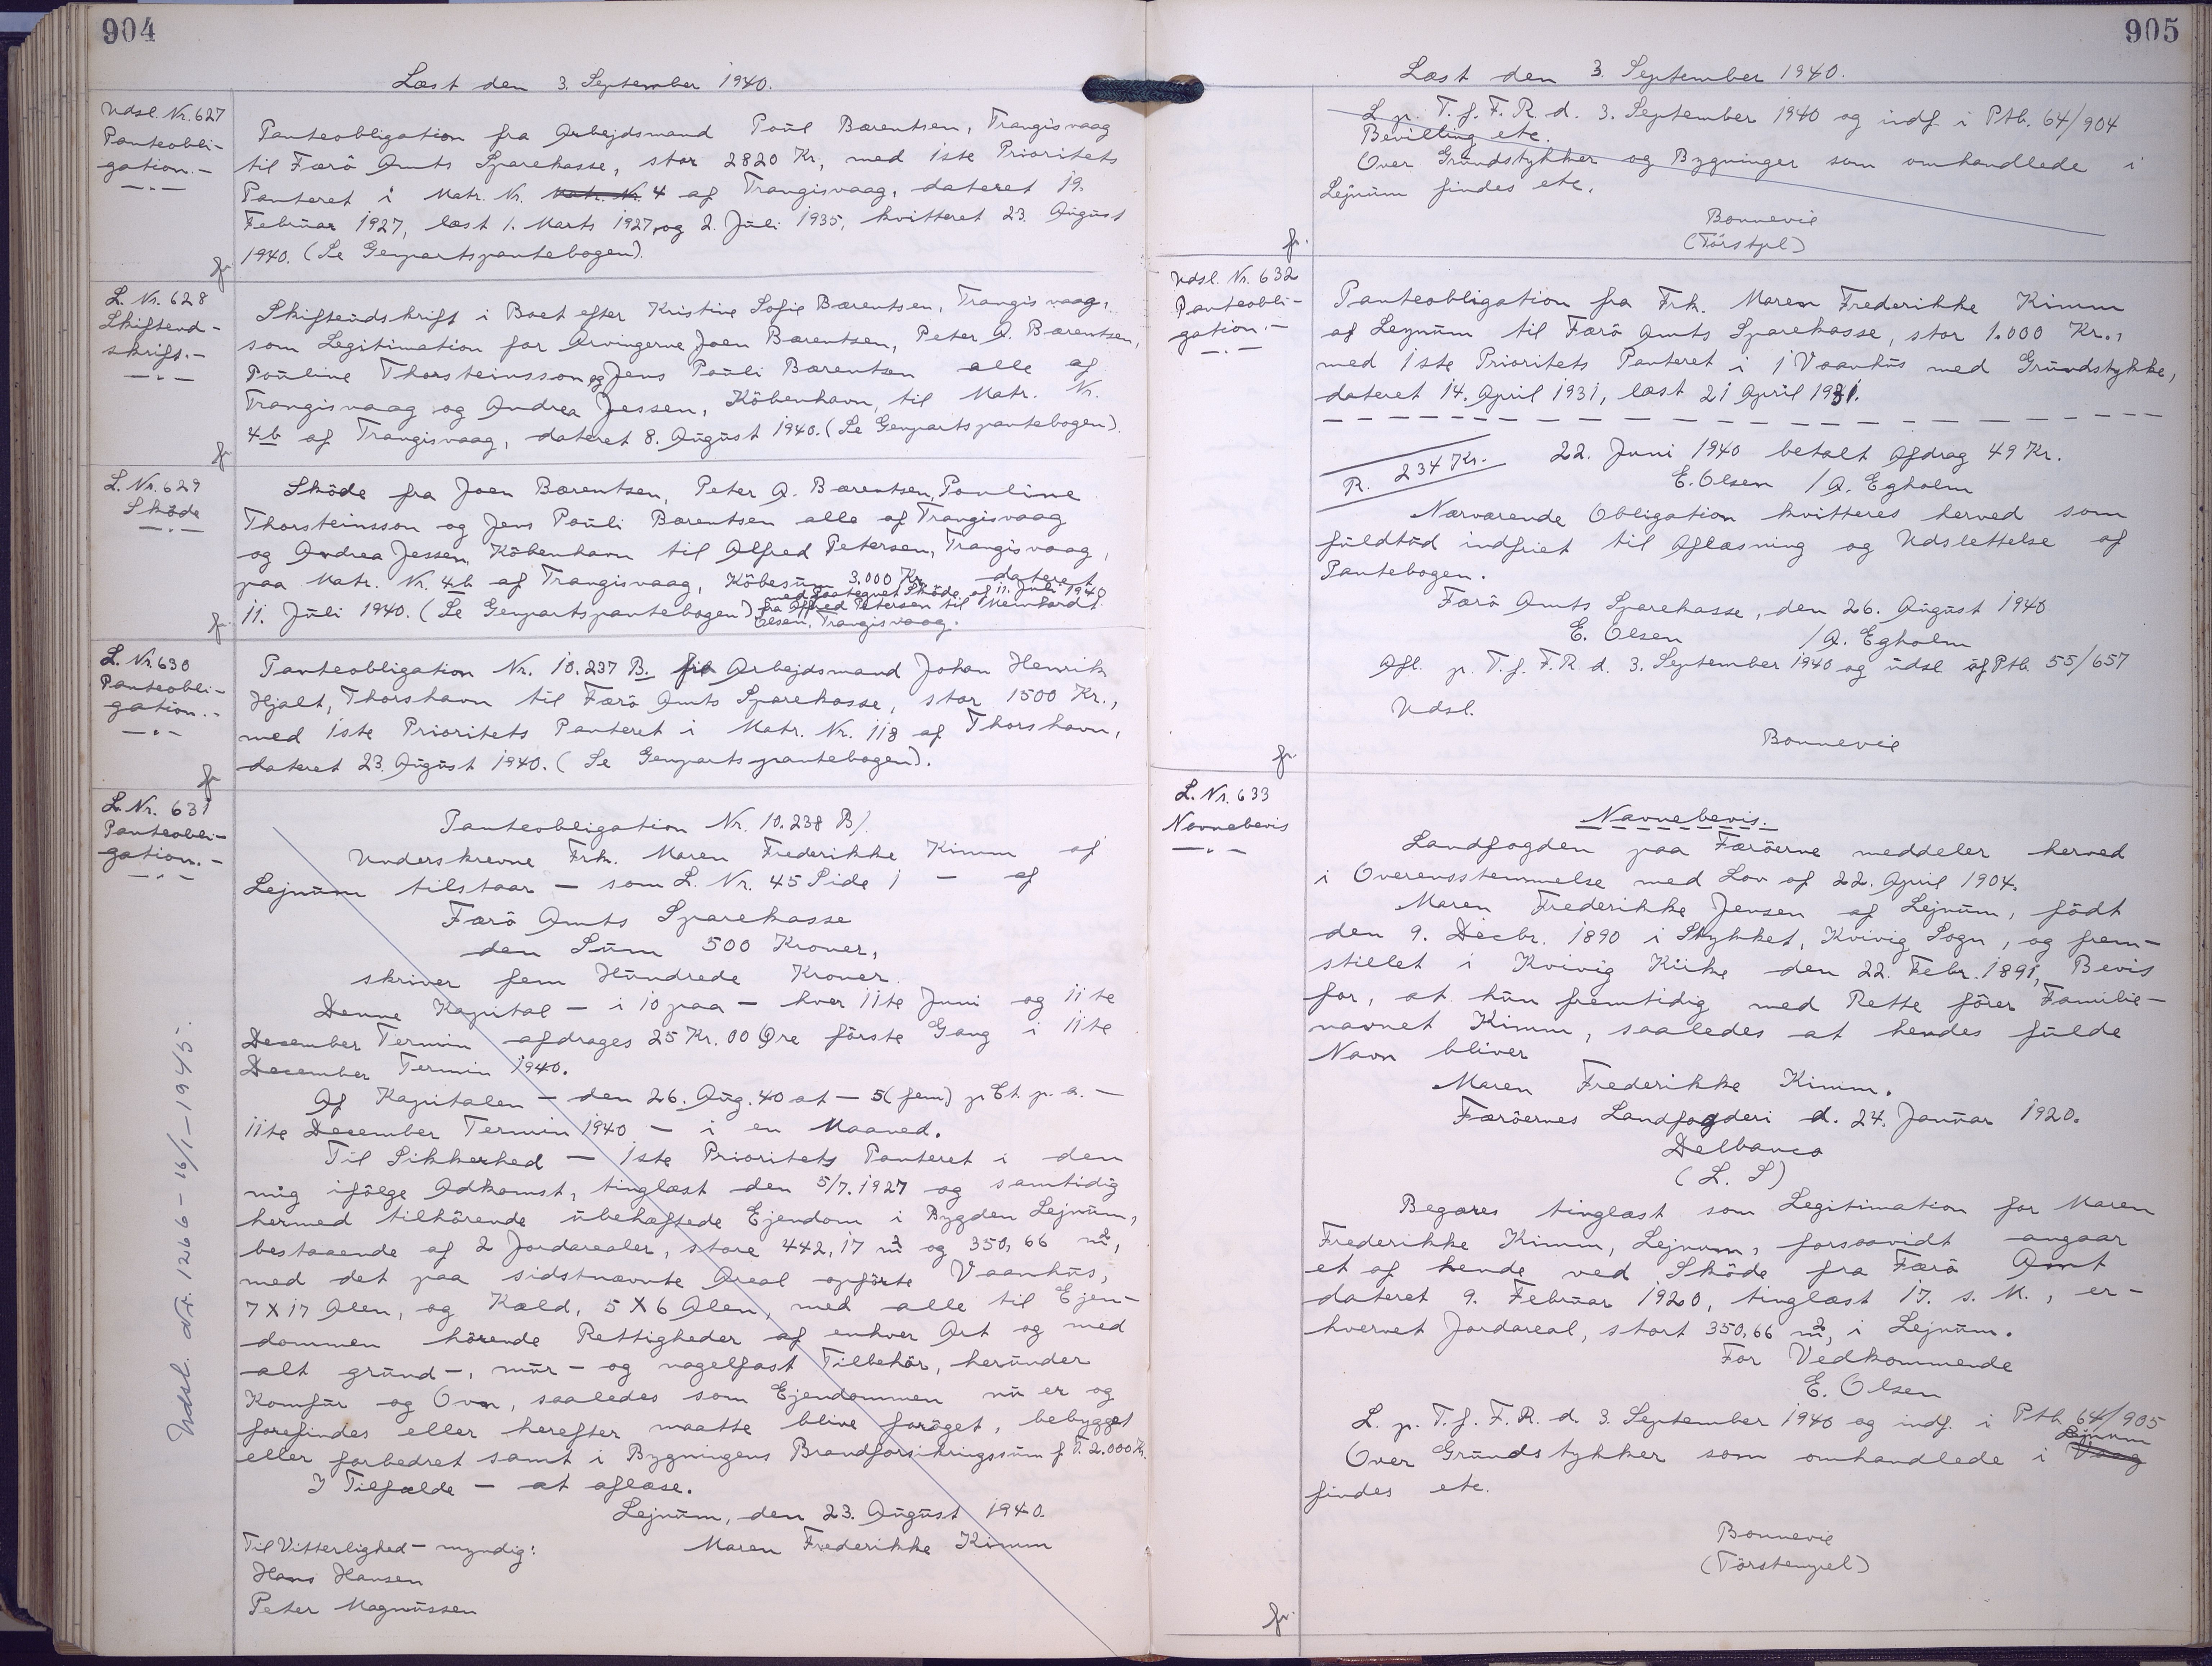 904
Læst den 3. September 1940.
Udsl. Nr. 627
Panteobli-
gation.-
Panteobligation fra Arbejdsmand Poul Bærentsen, Trangisvaag
til Færö Amts Sparekasse, stor 2820 Kr, med 1ste Prioritets
Panteret i Matr. Nr. Matr. Nr. 4 af Trangisvaag, dateret 19.
Februar 1927, læst 1. Marts 1927, og 2. Juli 1935, kvitteret 23. August
1940. (Se Genpartspantebogen).
L. Nr. 628
Skifteud-
skrift.-
Skifteudskrift i Boet efter Kristine Sofie Bærentsen, Trangisvaag,
som Legitimation for Arvingerne Joen Bærentsen, Peter A. Bærentsen,
Pouline Thorsteinsson og Jens Pauli Bærentsen alle af
Trangisvaag og Andrea Jessen, Köbenhavn, til Matr. Nr.
4b af Trangisvaag, dateret 8. August 1940. (Se Genpartspantebogen).
L. Nr. 629
Sköde
Sköde fra Joen Bærentsen, Peter A. Bærentsen, Pouline
Thorsteinsson og Jens Pauli Bærentsen alle af Trangisvaag
og Andrea Jessen, Köbenhavn til Alfred Petersen, Trangisvaag,
paa Matr. Nr. 4b af Trangisvaag, Köbesum 3.000 Kr. dateret
11. Juli 1940. (Se Genpartspantebogen) med paategnet Sköde af 11. Juli 1940
fra Alfred Petersen til Meinhardt
Olsen, Trangisvaag.
L. Nr. 630
Panteobli-
gation.-
Panteobligation Nr. 10.237 B. fra Arbejdsmand Johan Henrik
Hjalt, Thorshavn til Færö Amts Sparekasse, stor 1500 Kr.,
med 1ste Prioritets Panteret i Matr. Nr. 118 af Thorshavn,
dateret 23. August 1940. (Se Genpartspantebogen).
L. Nr. 631
Panteobli-
gation.-
Panteobligation Nr. 10.238 B/.
Underskrevne Frk. Maren Frederikke Kimm af
Lejnum tilstaar - som L. Nr. 45 Side 1 - af
Færö Amts Sparekasse
den Sum 500 Kroner,
skriver fem Hundrede Kroner.
Denne Kapital - i 10 paa - hver 11te Juni og 11te
December Termin afdrages 25 Kr. 00 Øre förste Gang i 11te
December Termin 1940.
Af Kapitalen - den 26. Aug. 40 at - 5 (fem) p Ct. p. a. -
11te December Termin 1940 - i en Maaned.
Til Sikkerhed - 1ste Prioritets Panteret i den
mig ifölge Adkomst, tinglæst den 5/7. 1927 og samtidig
hermed tilhörende ubehæftede Ejendom i Bygden Lejnum,
bestaaende af 2 Jordarealer, store 442,17 m² og 350,66 m²,
med det paa sidstnævnte Areal opförte Vaanhus,
7 X 17 Alen, og Kæld, 5 X 6 Alen, med alle til Ejen-
dommen hörende Rettigheder af enhver Art og med
alt grund-, mur- og nagelfast Tilbehör, herunder
Komfur og Ovn, saaledes som Ejendommen nu er og
forefindes eller herefter maatte blive foröget, bebygget
eller forbedret samt i Bygningens Brandforsikringssum f. T. 2.000 Kr.
I Tilfælde - at aflæse.
Lejnum, den 23. August 1940.
Til Vitterlighed - myndig: Maren Frederikke Kimm
Hans Hansen
Peter Magnussen
Udsl. Nr. 1266 - 16/1-1945.
905
Læst den 3. September 1940.
L. p. T. f. F. R. d. 3. September 1940 og indf. i Ptb. 64/904
Bevilling etc.
Over Grundstykker og Bygninger som omhandlede i
Lejnum findes etc.
Bonnevie
(Törstpl)
Udsl. Nr. 632
Panteobli-
gation.-
Panteobligation fra Frk. Maren Frederikke Kimm
af Leynum til Færö Amts Sparekasse, stor 1.000 Kr.,
med 1ste Prioritets Panteret i 1 Vaanhus med Grundstykke,
dateret 14. April 1931, læst 21 April 1931.
R. 234 Kr.
22. Juni 1940 betalt Afdrag 49 Kr.
E. Olsen / A. Egholm
Nærværende Obligation kvitteres herved som
fuldtud indfriet til Aflæsning og Udslettelse af
Pantebogen.
Færö Amts Sparekasse, den 26. August 1940
E. Olsen / A. Egholm
Afl. p. T. f. F. R d. 3. September 1940 og udsl. af Ptb. 55/657
Udsl.
Bonnevie
L. Nr. 633
Navnebevis
Navnebevis.
Landfogden paa Færöerne meddeler herved
i Overensstemmelse med Lov af 22. April 1904.
Maren Frederikke Jensen af Lejnum, födt
den 9. Decbr. 1890 i Stykket, Kvivig Sogn, og frem-
stillet i Kvivig Kirke den 22. Febr. 1891, Bevis
for, at hun fremtidig med Rette förer Familie-
navnet Kimm, saaledes at hendes fulde
Navn bliver
Maren Frederikke Kimm.
Færöernes Landfogderi d. 24. Januar 1920.
Delbanco
(L. S)
Begæres tinglæst som Legitimation for Maren
Frederikke Kimm, Lejnum, forsaavidt angaar
et af hende ved Sköde fra Færö Amt
dateret 9. Februar 1920, tinglæst 17. s. M., er-
hvervet Jordareal, stort 350,66 m², i Lejnum.
For Vedkommende
E. Olsen
L. p. T. f. F. R. d. 3. September 1940 og indf. i Ptb. 64/905
Over Grundstykker som omhandlede i Vaag Lejnum
findes etc.
Bonnevie
(Törstempel)